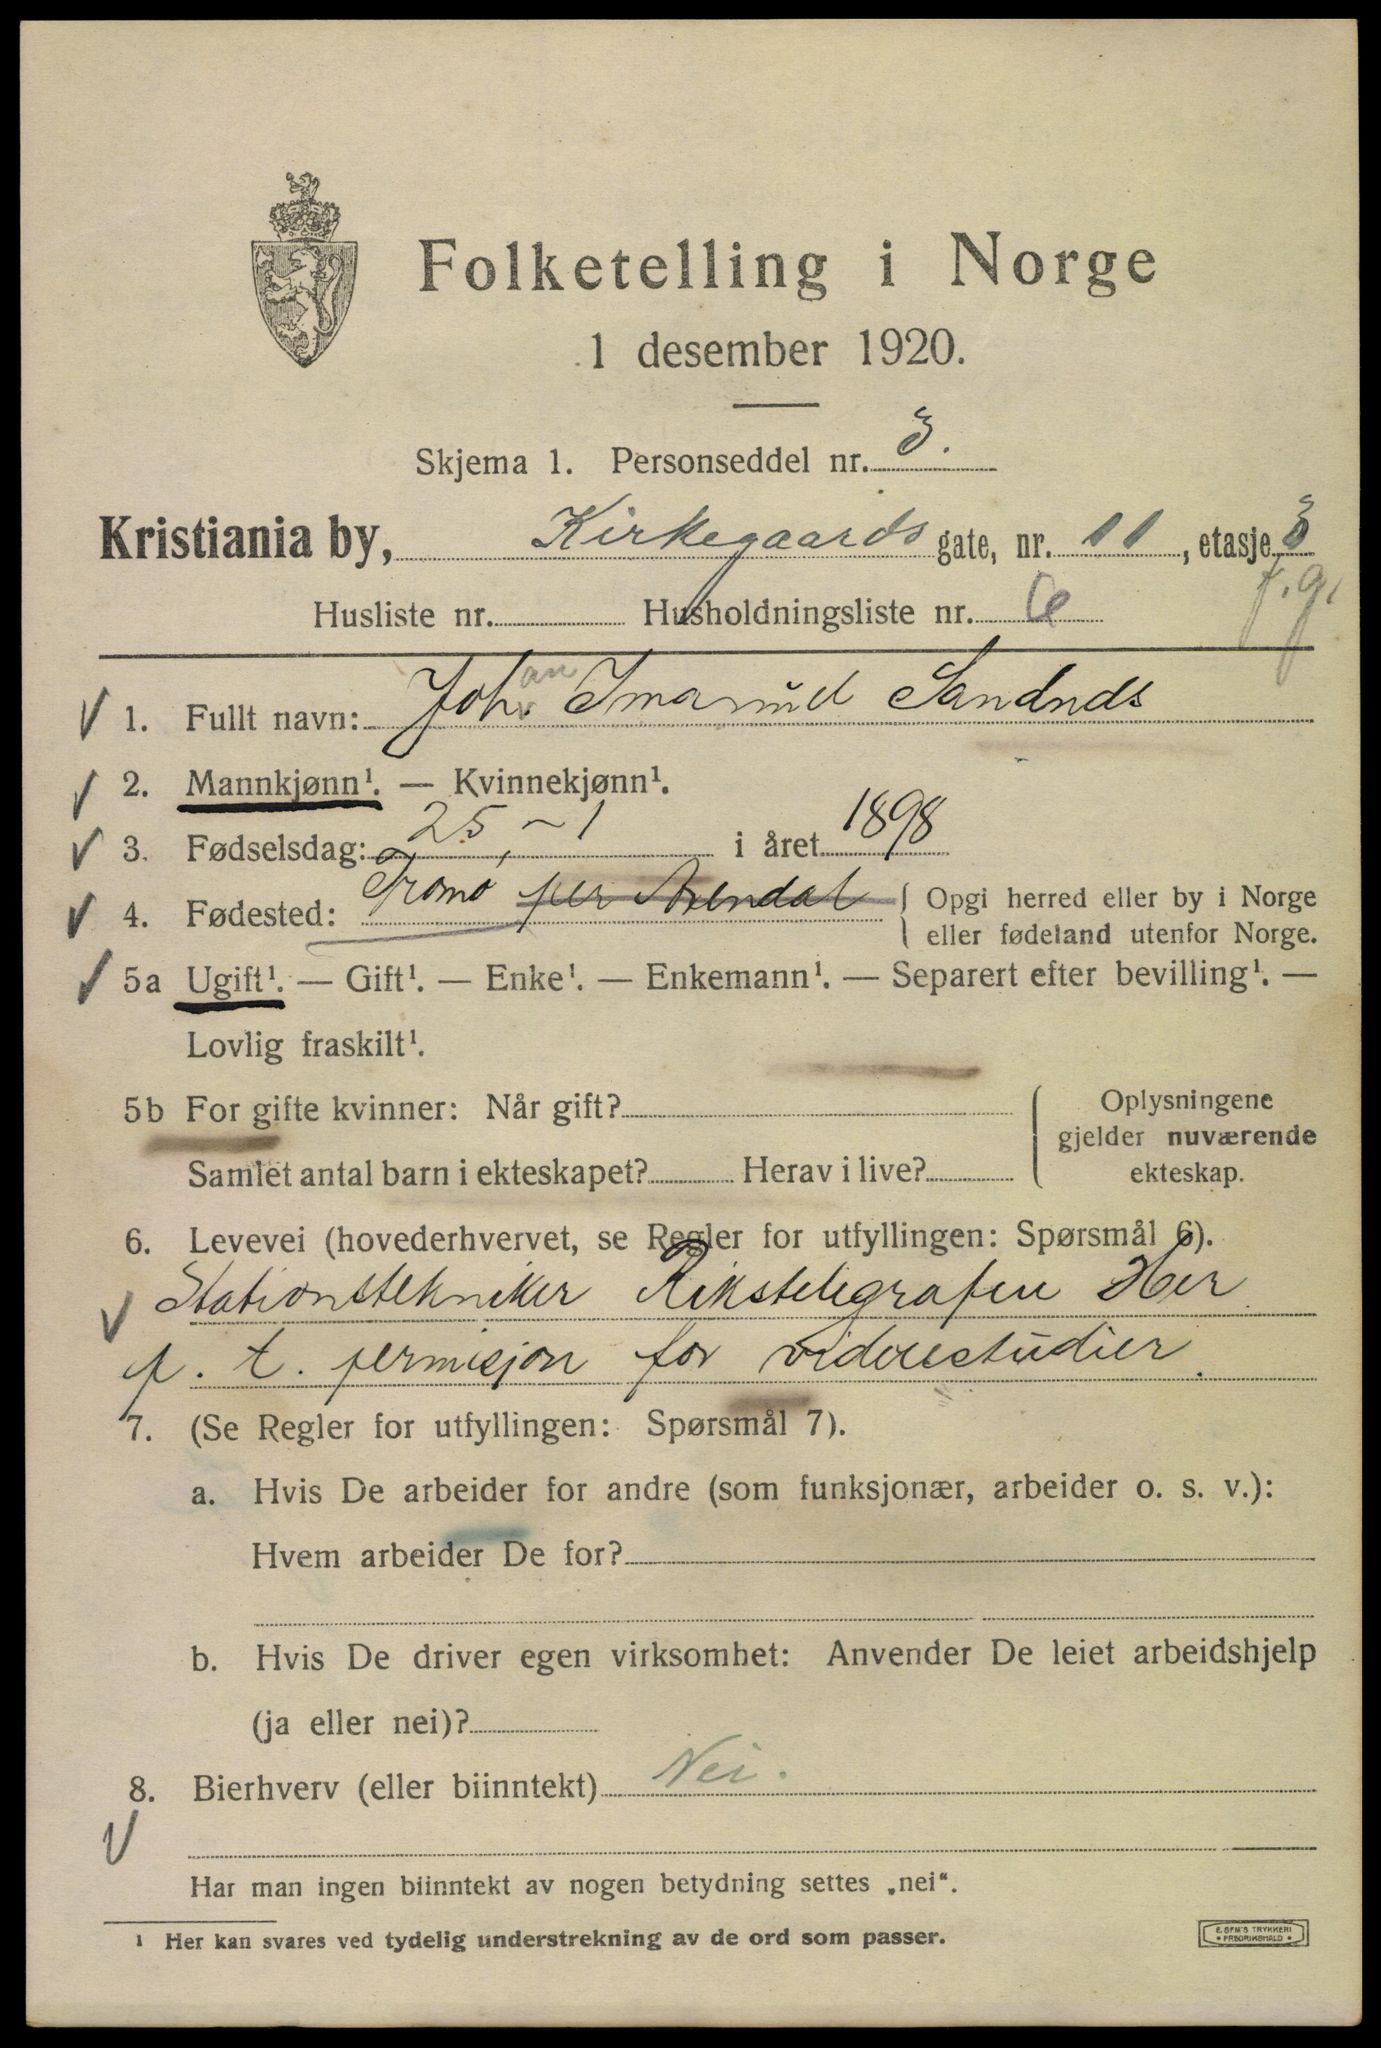 Folketelling i Norge
1 desember 1920.
Skjema 1. Personseddel nr. 3.
Kristiania by, Kirkegaards gate, nr. 11, etasje 3
f.g.
Husliste nr. Husholdningsliste nr. 6
1. Fullt navn: Johan Imanuel Sandnes
2. Mannkjønn¹. — Kvinnekjønn¹.
3. Fødselsdag: 25, - 1 i året 1898
4. Fødested: Tromø per Arendal { Opgi herred eller by i Norge
eller fødeland utenfor Norge.
5a Ugift¹. — Gift¹. — Enke¹. — Enkemann¹. — Separert efter bevilling¹. —
Lovlig fraskilt¹.
5b For gifte kvinner: Når gift? { Oplysningene
gjelder nuværende
Samlet antal barn i ekteskapet? Herav i live? ekteskap.
6. Levevei (hovederhvervet, se Regler for utfyllingen: Spørsmål 6).
Stationstekniker Rikstelegrafen Her
p. t. permisjon for viderestudier.
7. (Se Regler for utfyllingen: Spørsmål 7).
a. Hvis De arbeider for andre (som funksjonær, arbeider o. s. v.):
Hvem arbeider De for?
b. Hvis De driver egen virksomhet: Anvender De leiet arbeidshjelp
(ja eller nei)?
8. Bierhverv (eller biinntekt) Nei.
Har man ingen biinntekt av nogen betydning settes „nei“.
¹ Her kan svares ved tydelig understrekning av de ord som passer.
E. SEM'S TRYKKERI
• FREDRIKSHALD •